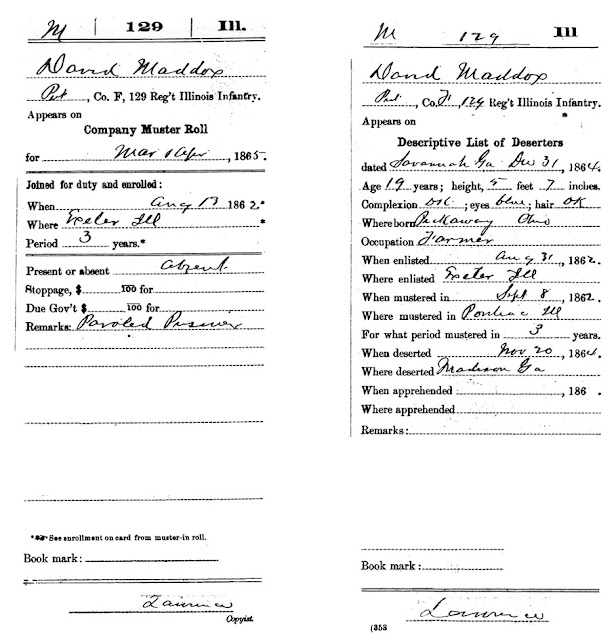 M | 129 | Ill.
David Maddox
Pvt, Co. F, 129 Reg't Illinois Infantry.
Appears on
Company Muster Roll
for Mar & Apr, 1865.
Joined for duty and enrolled:
When Aug 13 1862.*
Where Exeter Ill *
Period 3 years.*
Present or absent Absent.
Stoppage, $ 100 for
Due Gov't $ 100 for
Remarks: Paroled Prisoner
*See enrollment on card from muster-in roll.
Book mark:
Lawrence
Copyist.
M 129 Ill
David Maddox
Pvt., Co. F, 129 Reg't Illinois Infantry.
Appears on
Descriptive List of Deserters
dated Savannah Ga Dec 31, 1864.
Age 19 years; height, 5 feet 7 inches.
Complexion DK; eyes blue; hair DK
Where born Pickaway Ohio
Occupation Farmer
When enlisted Aug 31, 1862.
Where enlisted Exeter Ill
When mustered in Sept 8, 1862.
Where mustered in Pontiac Ill
For what period mustered in 3 years.
When deserted Nov 20, 1864.
Where deserted Madison Ga
When apprehended , 186 .
Where apprehended
Remarks:
Book mark:
Lawrence
(353